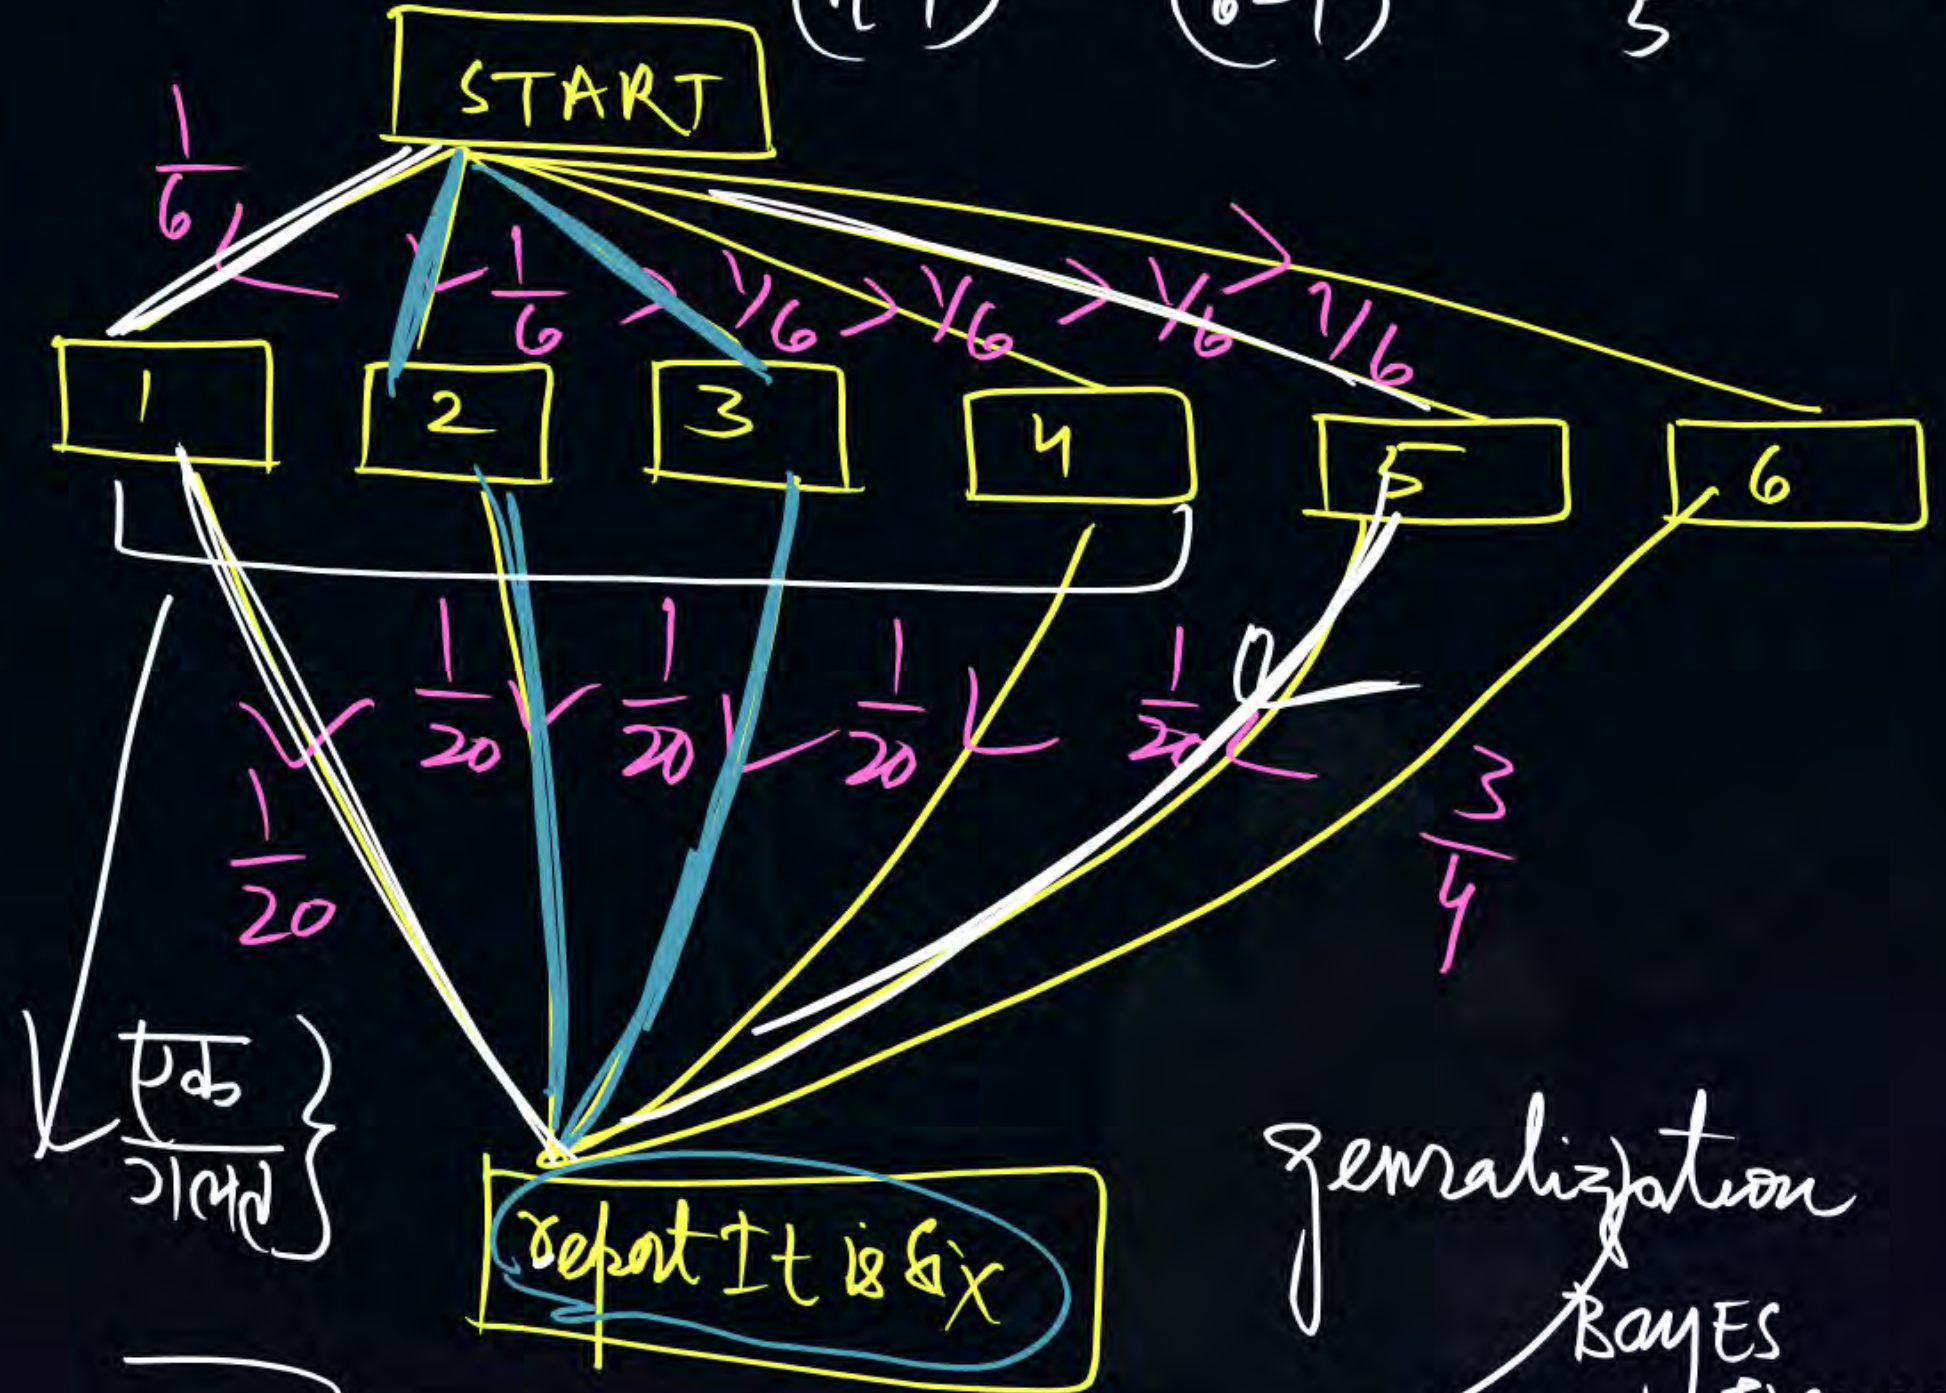 START
1/6
1/6 1/6 1/6 1/6 1/6
1 2 3 4 5 6
1/20 1/20 1/20 1/20 1/20 0
1/20
3/4
एक
गलत
report It is Six
genralization
BAYES